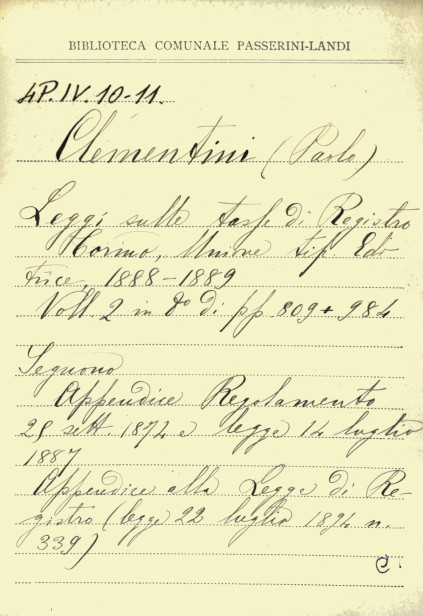 BIBLIOTECA COMUNALE PASSERINI-LANDI
4P.IV.10-11.
Clementini (Paolo)
Leggi sulle tasse di Registro
Torino, Unione tip. Edi
trice, 1888-1889
Voll. 2 in 8º di pp. 809 + 984
Seguono
Appendice Regolamento
25 sett. 1874 e legge 14 luglio
1887
Appendice alla Legge di Re-
gistro (legge 22 luglio 1894 n.
339)